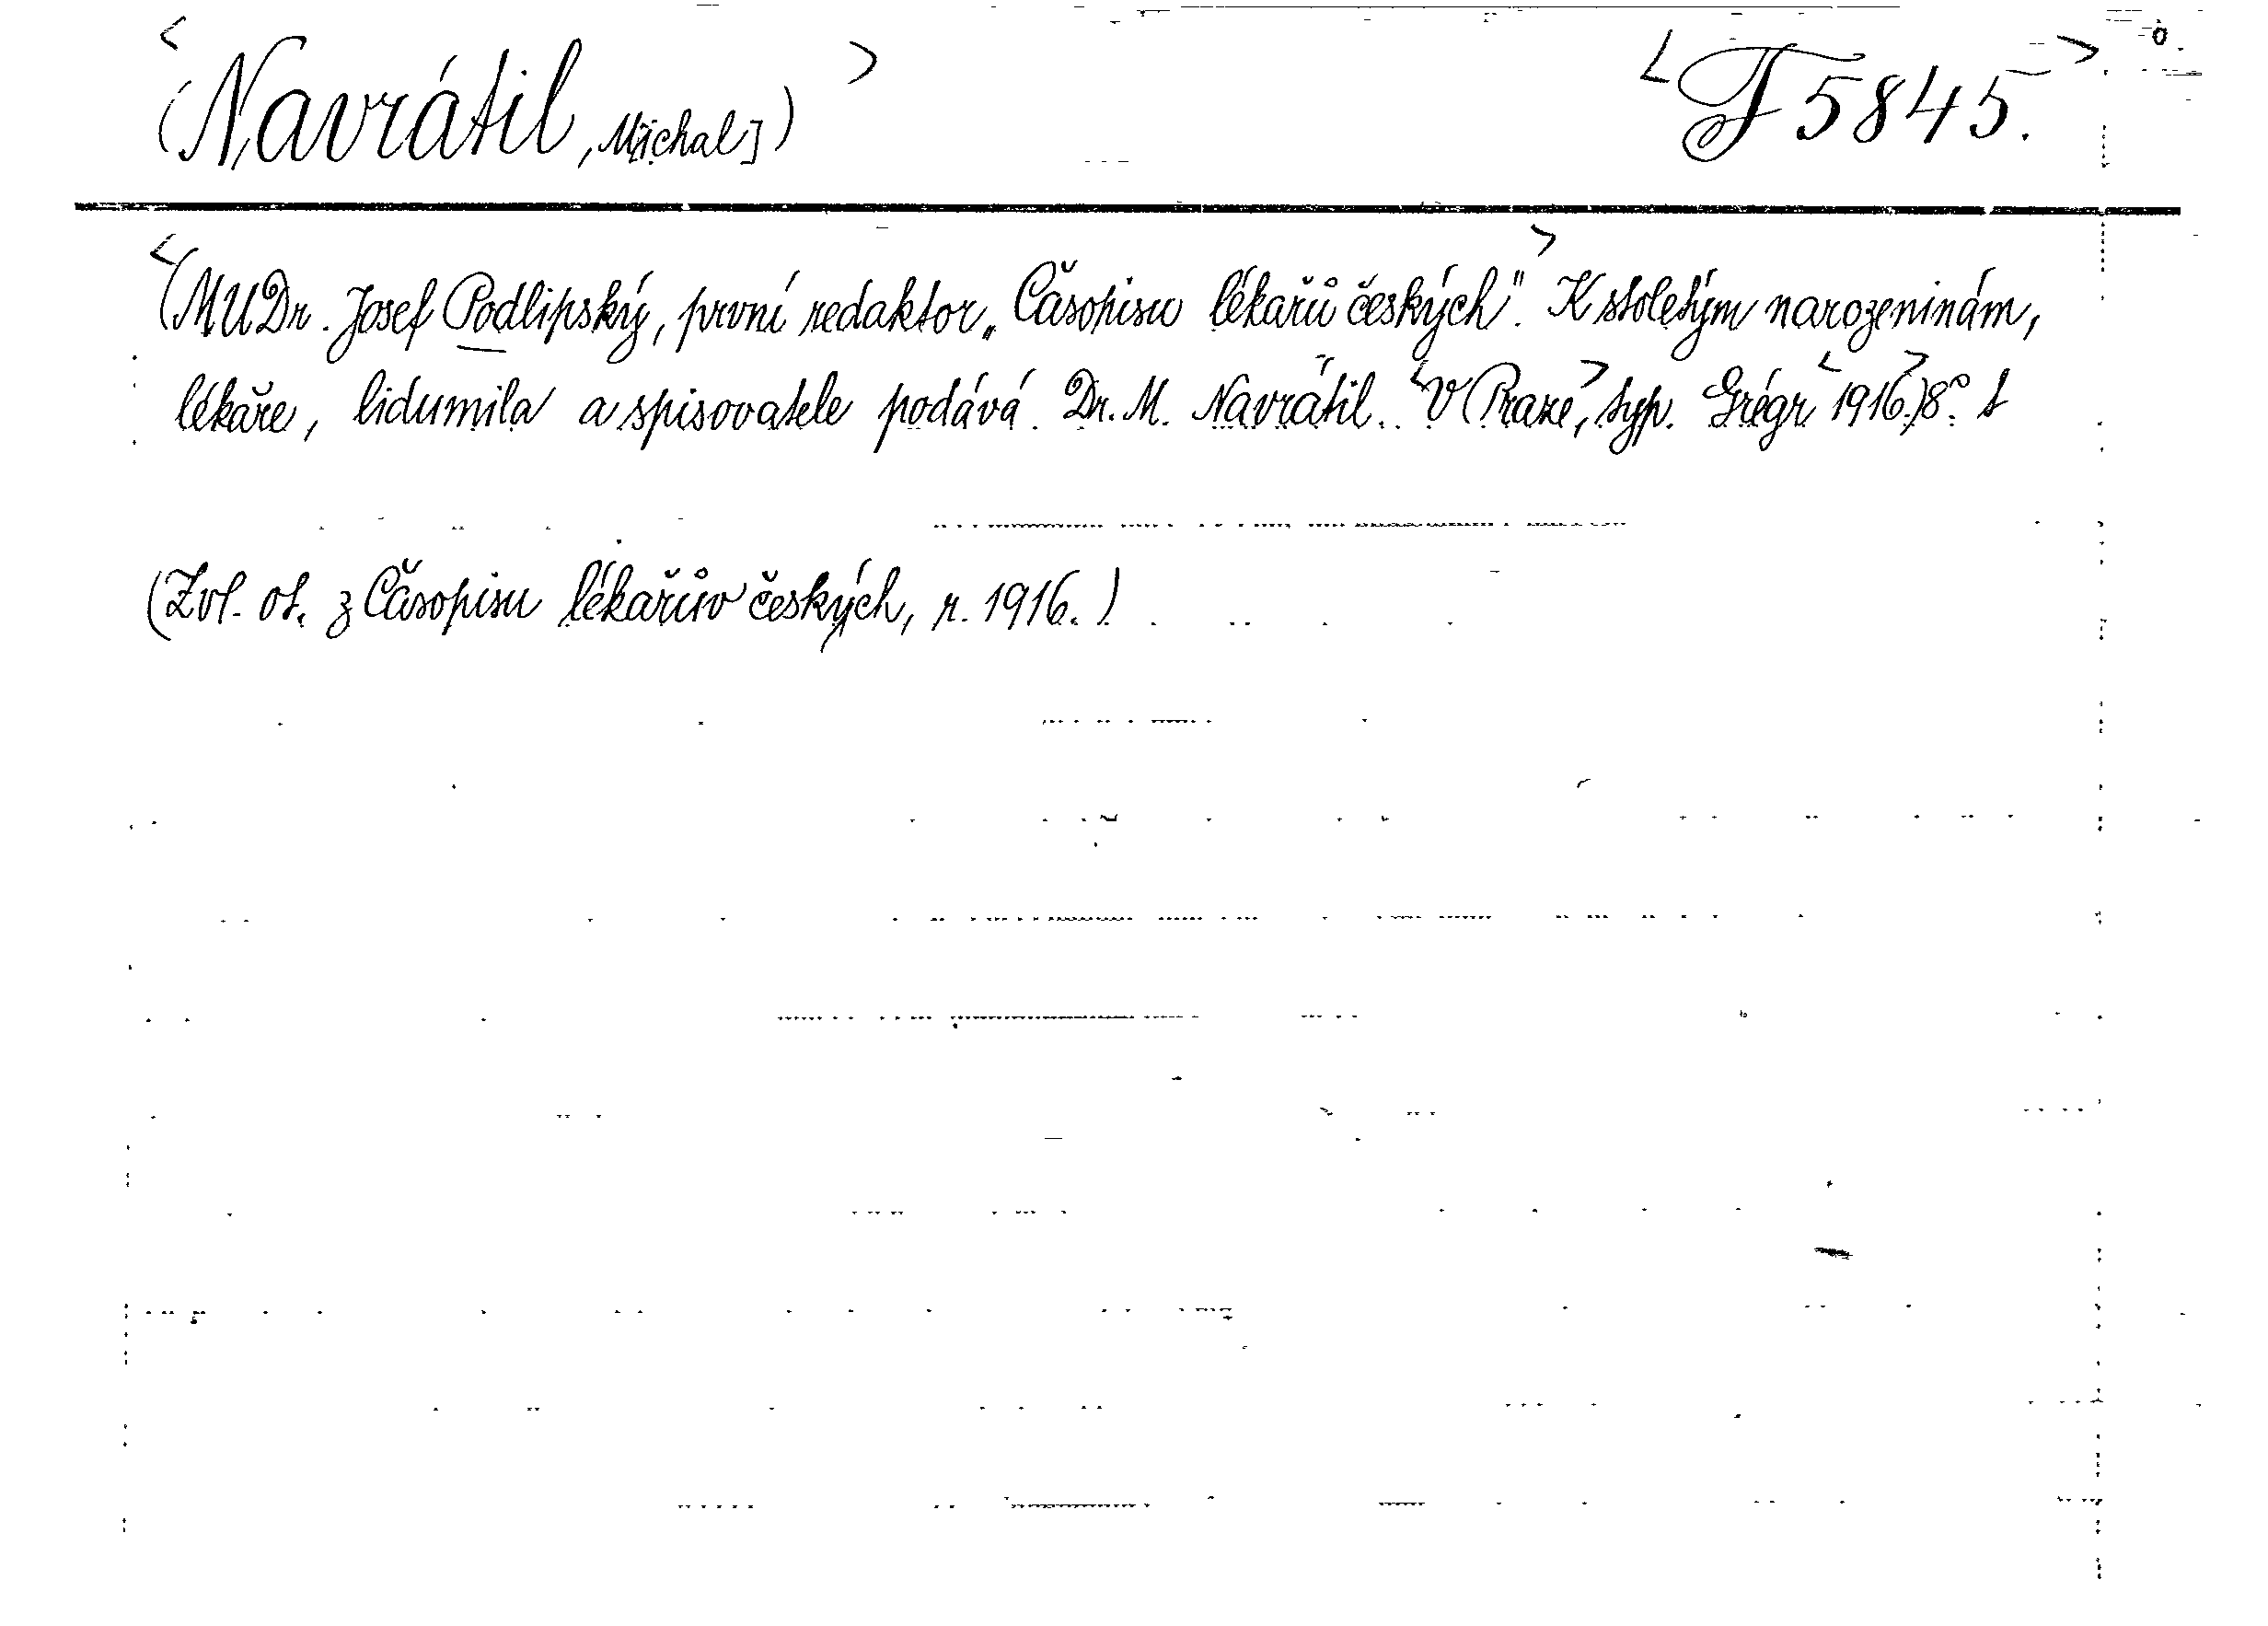 <(Navrátil, Michal])> <T 5845.>
<(MUDr. Josef Podlipský, první redaktor „Časopisu lékařů českých".> K stoletým narozeninám,
lékaře, lidumila a spisovatele podává Dr. M. Navrátil. <V (Praze,> typ. Grégr <1916.>) 8°.
(Zvl. ot. z Časopisu lékařův českých, r. 1916.)